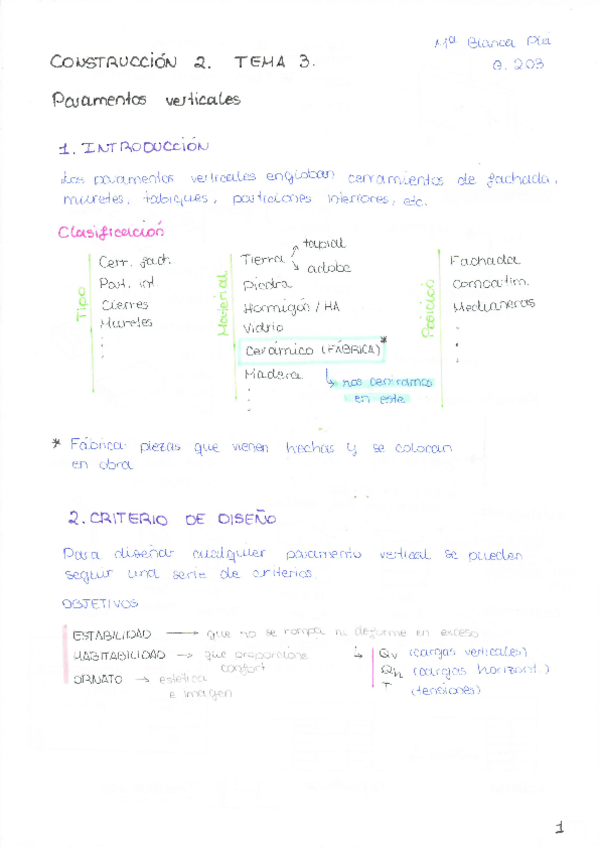 Mª Blanca Plá
CONSTRUCCIÓN 2. TEMA 3.
A. 203
Paramentos verticales
1. INTRODUCCIÓN
Los paramentos verticales engloban cerramientos de fachada,
muretes, tabiques, particiones interiores, etc.
Clasificación
Tipo
Cerr. fach.
Part. int
Cierres
Muretes
Material
Tierra
tapial
adobe
Piedra
Hormigón / HA
Vidrio
Cerámico (FÁBRICA) *
Madera
nos centramos
en este
Posición
Fachada
Compartim.
Medianeras
* Fábrica: piezas que vienen hechas y se colocan
en obra
2. CRITERIO DE DISEÑO
Para diseñar cualquier paramento vertical se pueden
seguir una serie de criterios.
OBJETIVOS
ESTABILIDAD → que no se rompa ni deforme en exceso
↳ Qv (cargas verticales)
Qh (cargas horizont.)
T (tensiones)
HABITABILIDAD → que proporcione
confort
ORNATO → estética
e imagen
1